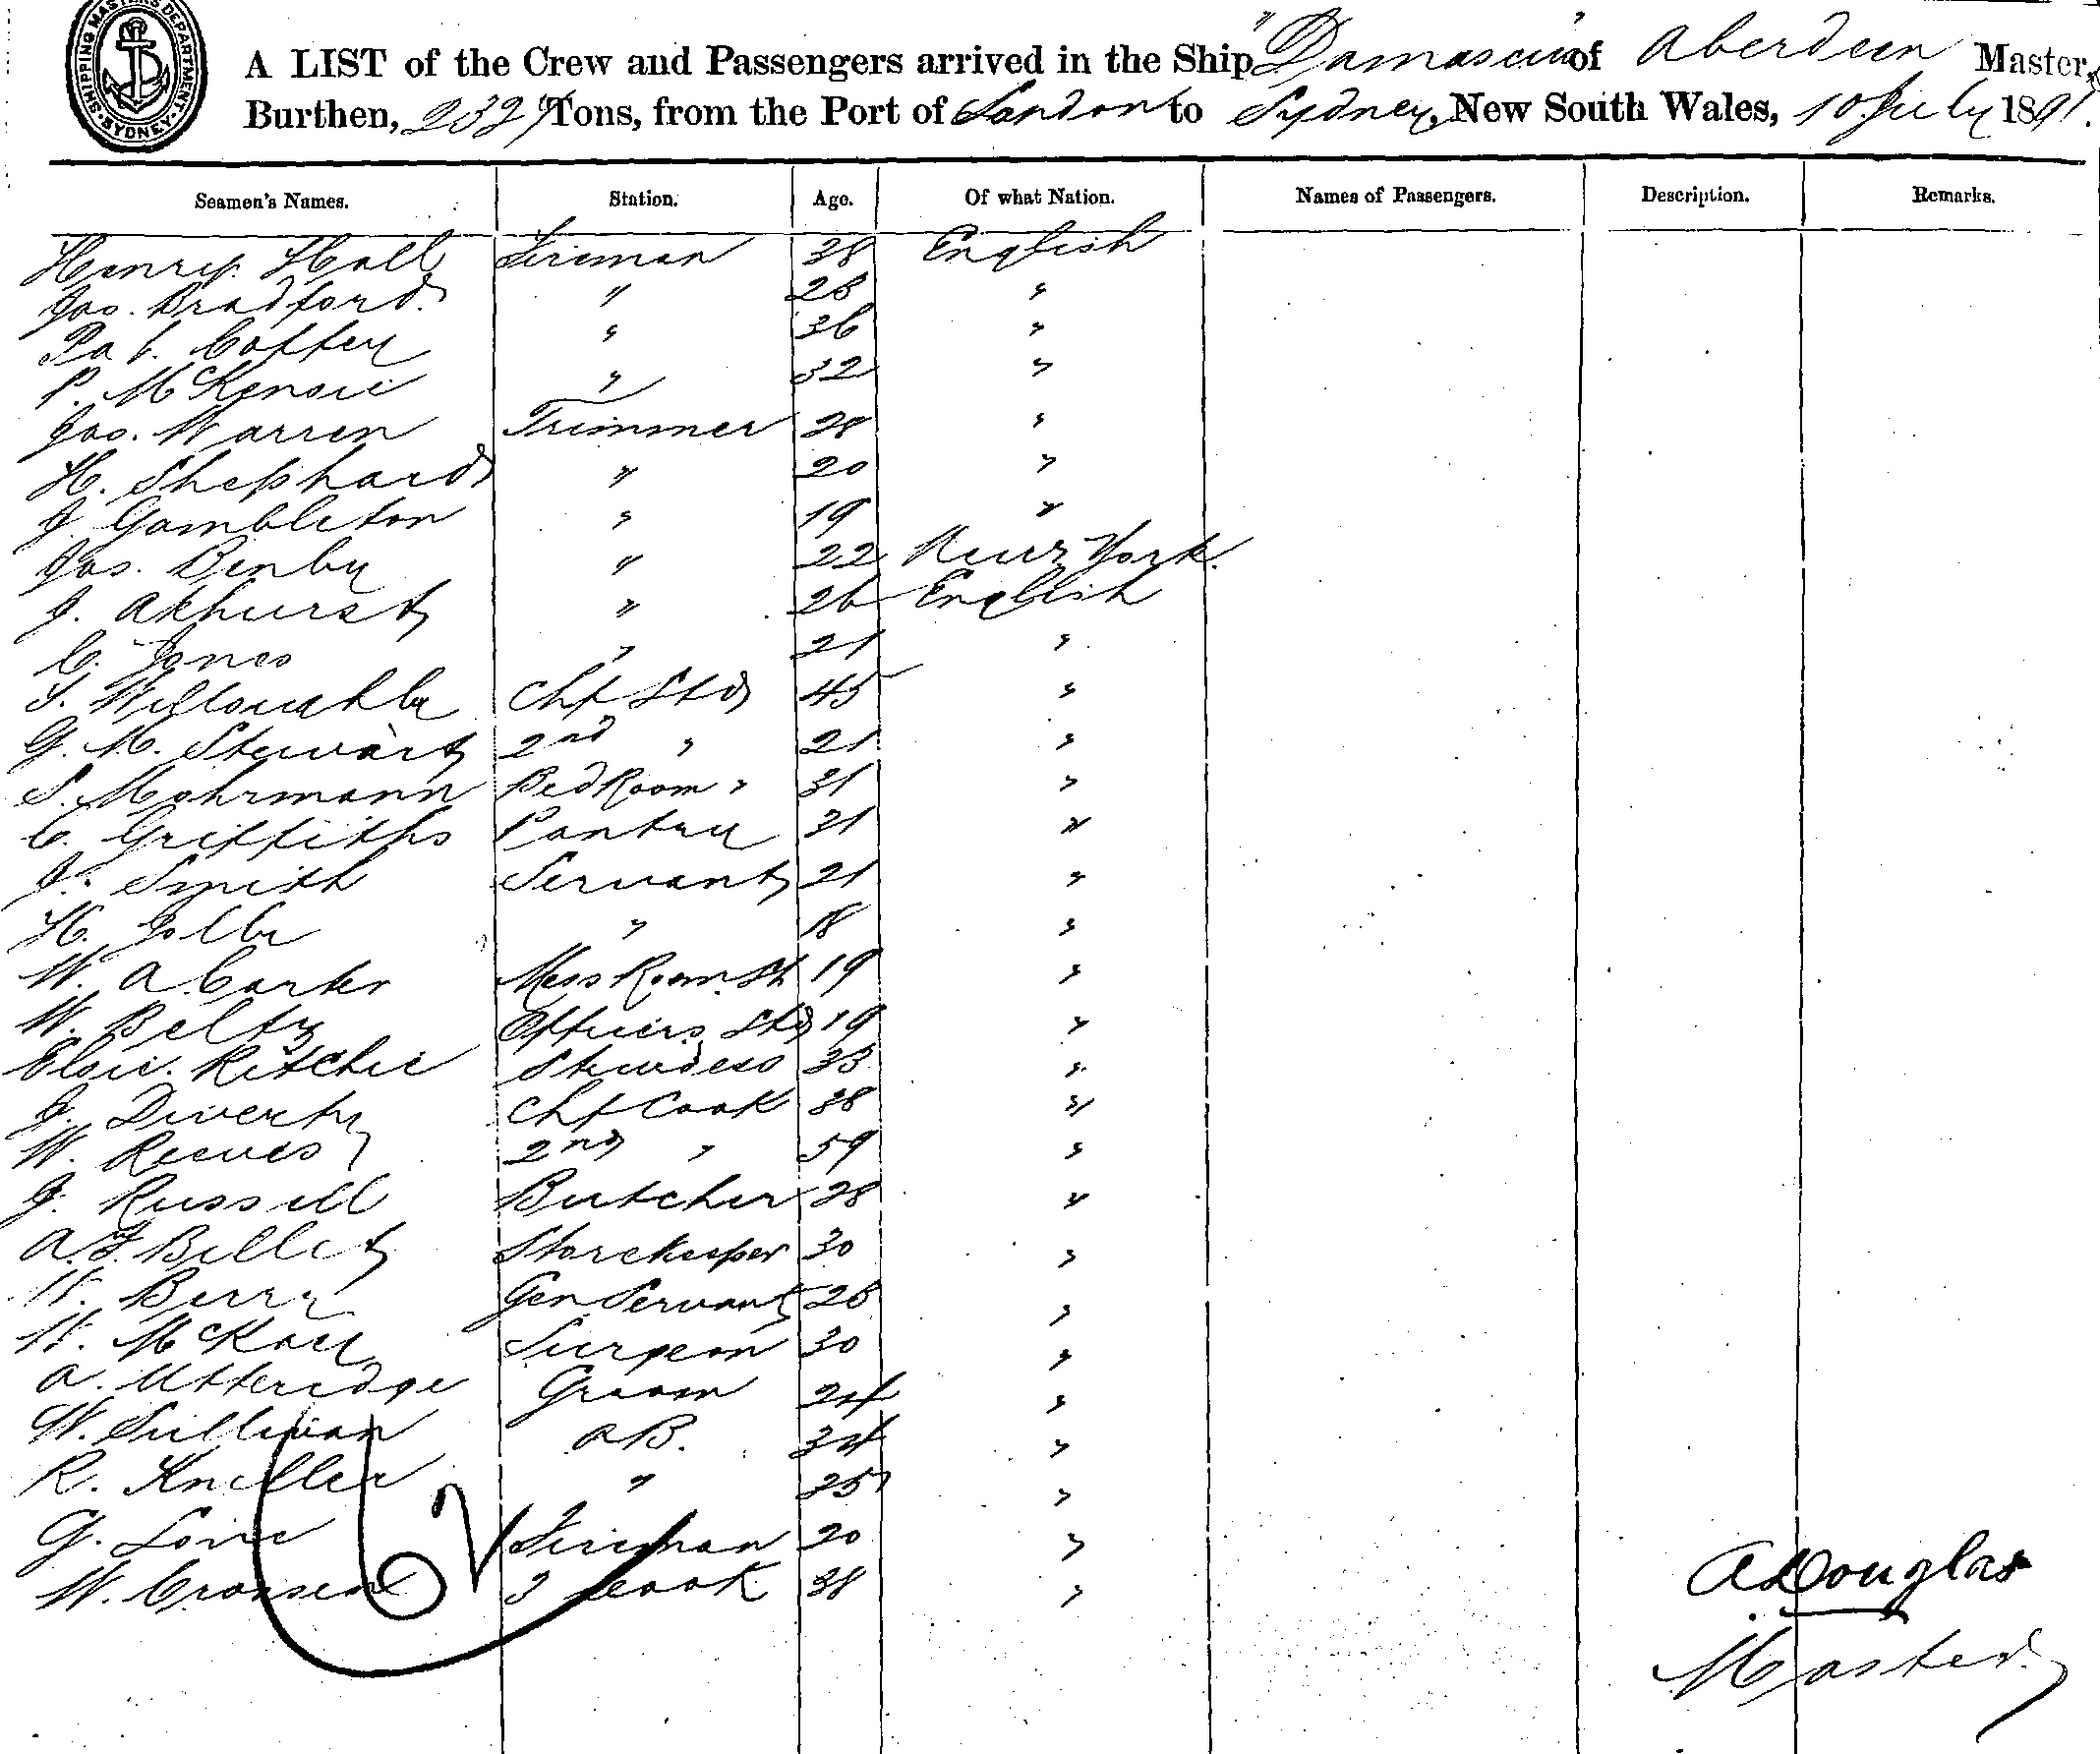 SHIPPING MASTERS DEPARTMENT · SYDNEY ·
A LIST of the Crew and Passengers arrived in the Ship "Damascus" of Aberdeen Master,
Burthen, 2327 Tons, from the Port of London to Sydney, New South Wales, 10 July 1891.
Seamen's Names. Station. Age. Of what Nation. Names of Passengers. Description. Remarks.
Henry Hall Fireman 38 English
Jas. Bradford " 28 "
Pat. Coffey " 36 "
P. McKensie " 32 "
Jas. Warren Trimmer 28 "
H. Shephard " 20 "
J Gambleton " 19 "
Jas. Benby " 22 New York.
J. Akhurst " 26 English
C. Jones " 21 "
Willoughby Chf Std 45 "
G. M. Stewart 2nd " 21 "
S. Mohrmann Bed Room " 31 "
C. Griffiths Pantry 21 "
J. Smith Servant 21 "
H. " 18 "
W. A Carter Mess Room St 19 "
W. Belty Officers Std 19 "
Ritchie Stewdess 33 "
J. Diverty Chf Cook 38 "
W. Reeves 2nd " 59 "
J. Russell Butcher 28 "
A. F. Billet Storekeeper 30 "
Berry Gen Servant 28 "
McKay Surgeon 30 "
A. Utteridge Groom 24 "
W. Sullivan AB. 34 "
R. Kneller " 25 "
G. Fireman 20 "
W. Crossen 3 Cook 38 "
A Douglas
Master